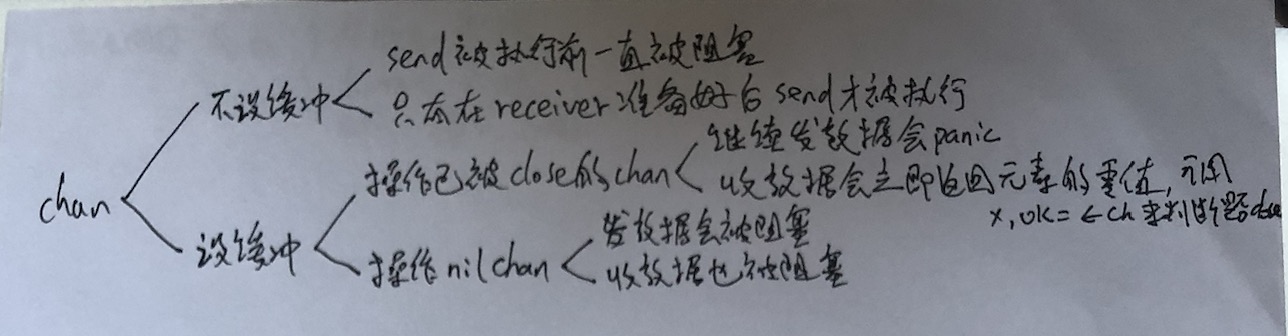 chan
不设缓冲
send被执行前一直被阻塞
只有在receiver准备好后send才被执行
设缓冲
操作已被close的chan
继续发数据会panic
收数据会立即返回元素的零值,可用
x,ok=<-ch来判断是否close
操作nil chan
发数据会被阻塞
收数据也被阻塞